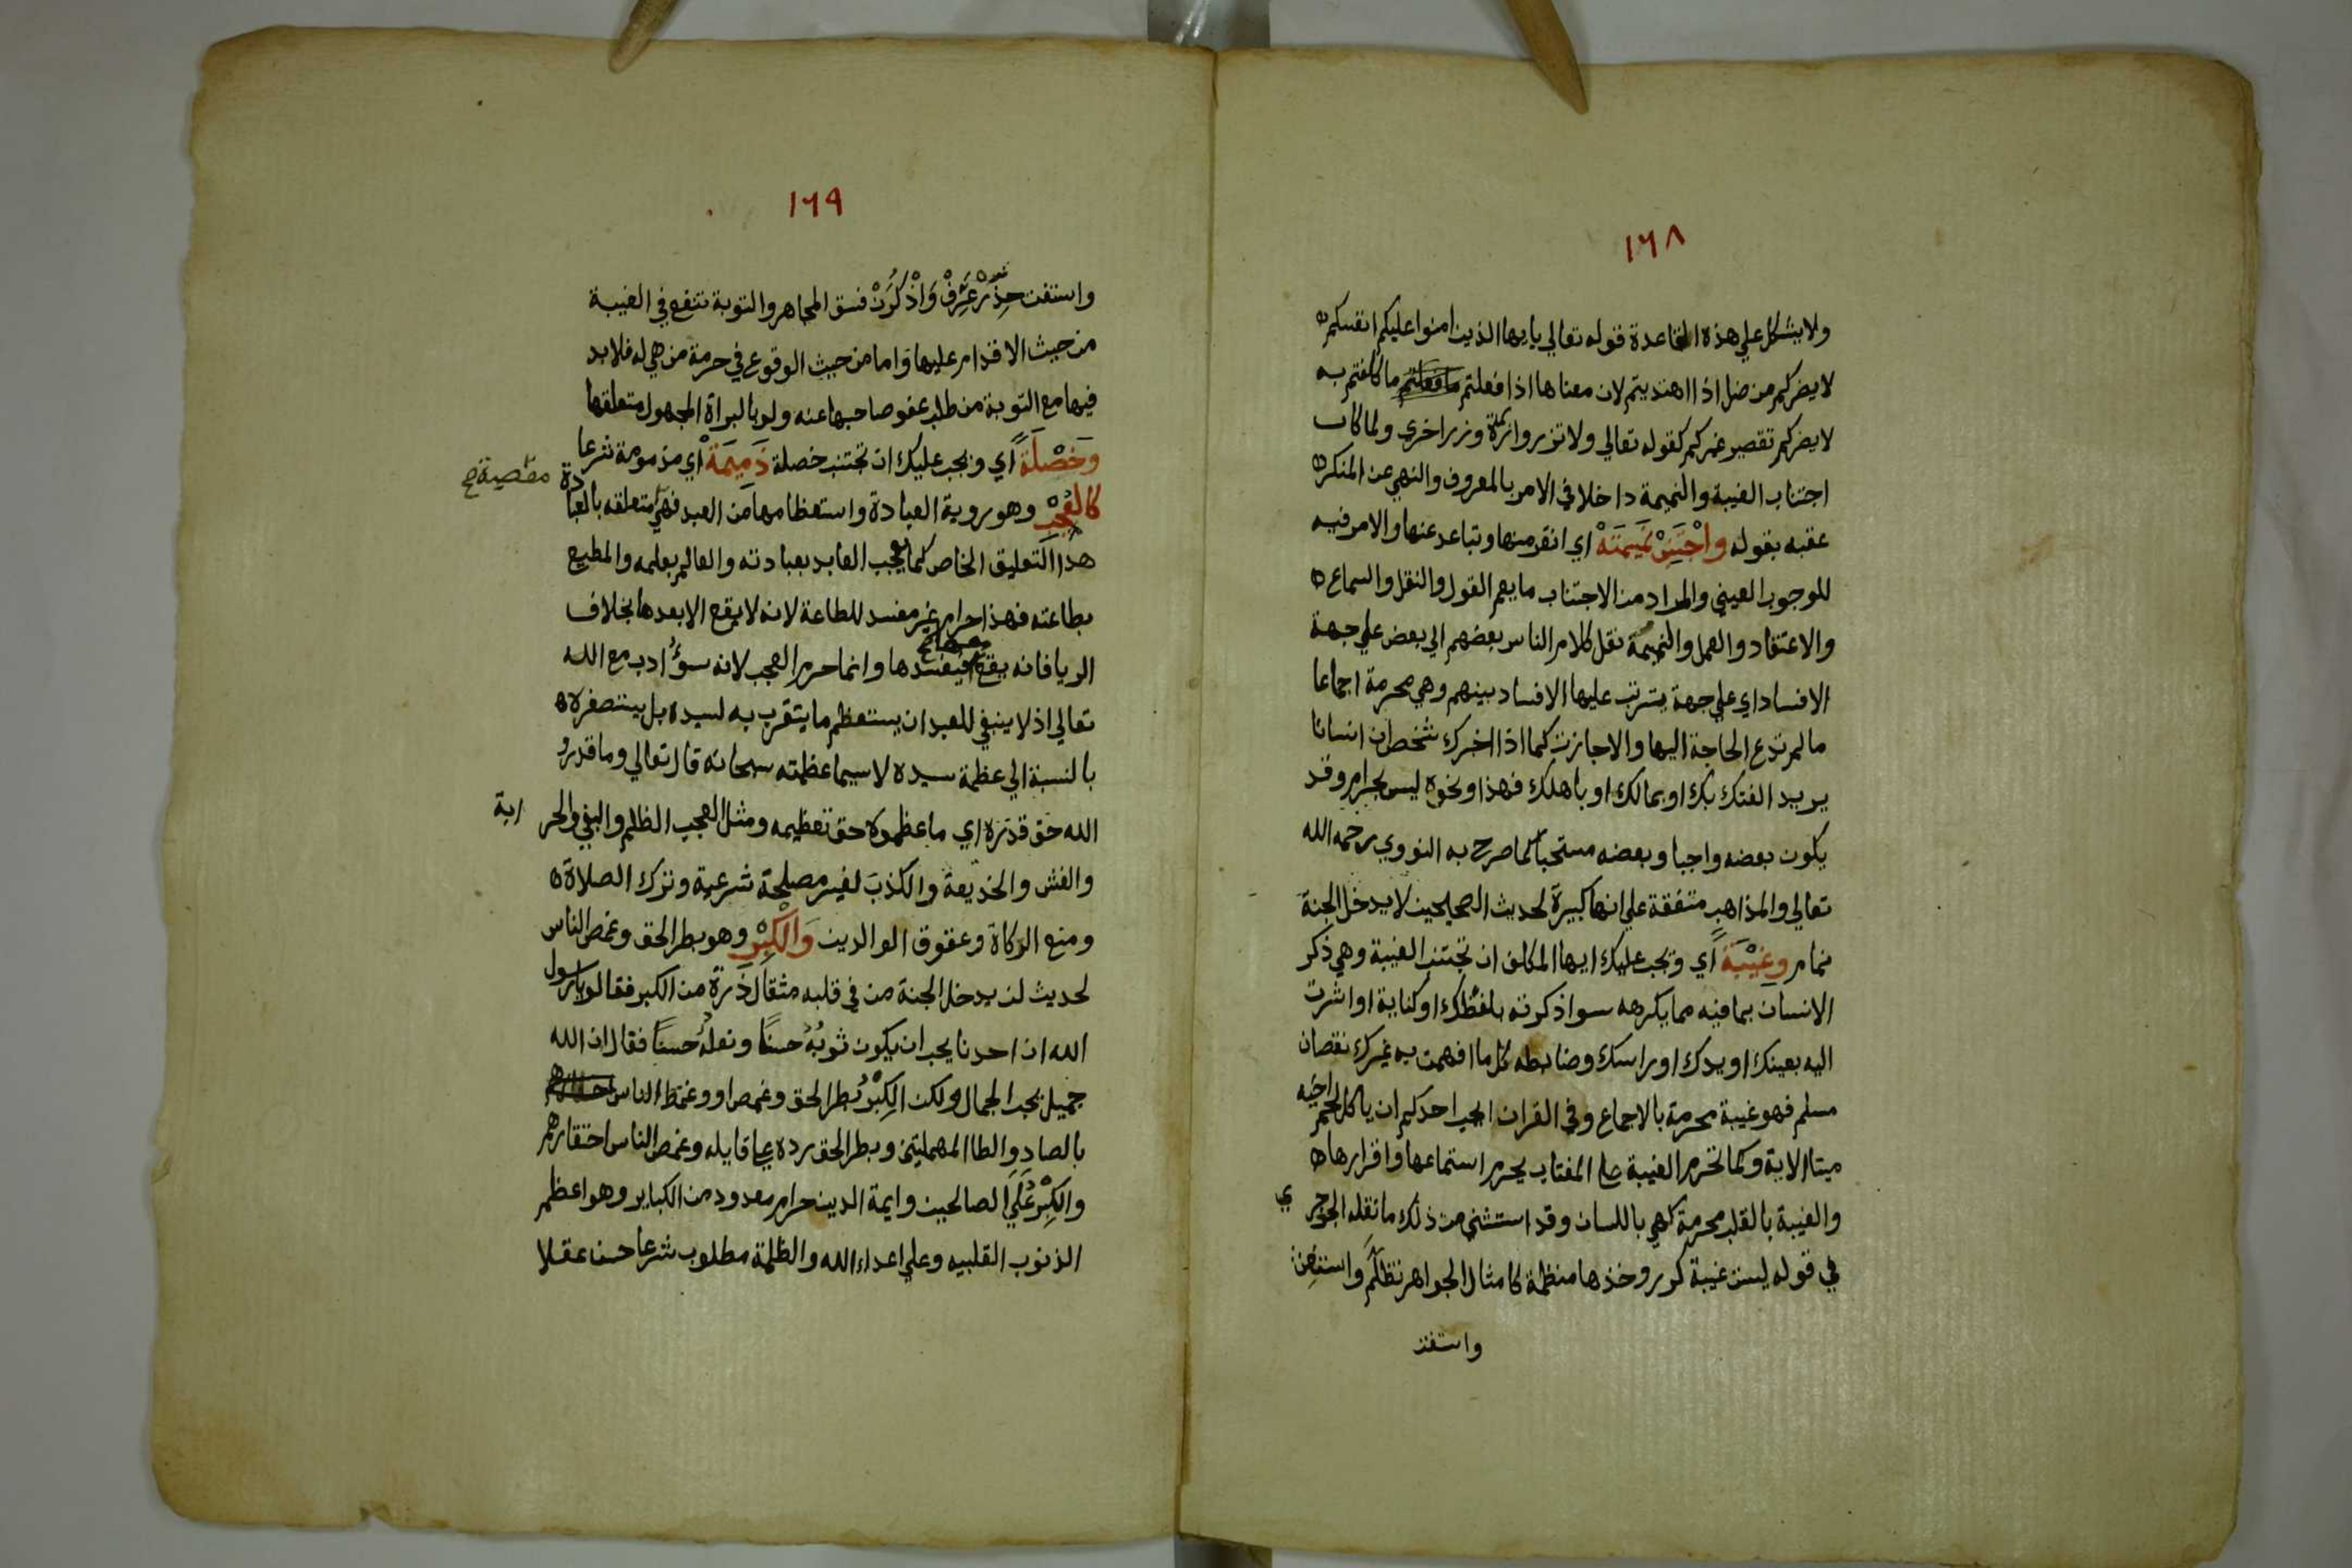 ١٦٨
ولا يشكل علي هذه القاعدة قوله تعالي يايها الذين امنوا عليكم انفسكم
لا يضركم من ضل اذا اهتديتم لان معناها اذا فعلتم ما كلفتم به
لا يضركم تقصير غيركم كقوله تعالي ولا تزر وازرة وزر اخري ولما كان
اجتناب الغيبة والنميمة داخلا في الامر بالمعروف والنهي عن المنكر
عقبه بقوله واجْتَنِبْ نَمِيمَةْ اي انفر منها وتباعد عنها والامر فيه
للوجوب العيني والمراد من الاجتناب ما يعم القول والنقل والسماع
والاعتقاد والعمل والنميمة نقل كلام الناس بعضهم الي بعض علي جهة
الافساد اي علي جهة يترتب عليها الافساد بينهم وهي محرمة اجماعا
ما لم تدع الحاجة اليها والا جازت كما اذا اخبرك شخص ان انسانا
يريد الفتك بك او بمالك او باهلك فهذا ونحوه ليس بحرام وقد
يكون بعضه واجبا وبعضه مستحبا كما صرح به النووي رحمه الله
تعالي والمذاهب متفقة علي انها كبيرة لحديث الصحيحين لا يدخل الجنة
نمام وغِيْبَةً اي ويجب عليك ايها المكلف ان تجتنب الغيبة وهي ذكر
الانسان بما فيه مما يكرهه سوا ذكرته بلفظك او كناية او اشرت
اليه بعينك او يدك او راسك وضابطه كل ما افهمت به غيرك نقصان
مسلم فهو غيبة محرمة بالاجماع وفي القران ايحب احدكم ان ياكل لحم اخيه
ميتا الاية وكما تحرم الغيبة علي المغتاب يحرم استماعها واقرارها
والغيبة بالقلب محرمة كهي باللسان وقد استثني من ذلك ما نقله الجوجري
في قوله لست غيبة كرر وخذها منظمة كامثال الجواهر تظلم واستعن
واستفت
١٦٩
واستفت حِذّرْ عَرِّفْ وَاذْكُرَنْ فسق المجاهر والتوبة تنفع في الغيبة
من حيث الاقدام عليها واما من حيث الوقوع في حرمة من هي له فلا بد
فيها مع التوبة من طلب عفو صاحبها عنه ولو بالبراة المجهول متعلقها
وَخَصْلَةً اي ويجب عليك ان تجتنب خصلة ذَمِيمَةْ اي مذمومة شرعا
كالعُجْبِ وهو روية العبادة واستعظامها من العبد فهي معصية متعلقه بالعبادة
هذا التعليق الخاص كما يعجب العابد بعبادته والعالم بعلمه والمطيع
بطاعته فهذا حرام غير مفسد للطاعة لانه لا يقع الا بعدها بخلاف
الريا فانه يقع معها فيفسدها وانما حرم العجب لانه سؤ ادب مع الله
تعالي اذ لا ينبغي للعبد ان يستعظم ما يتقرب به لسيده بل يستصغره
بالنسبة الي عظمة سيده لا سيما عظمته سبحانه قال تعالي وما قدروا
الله حق قدره اي ما عظموه حق تعظيمه ومثل العجب الظلم والبغي والحرابة
والغش والخديعة والكذب لغير مصلحة شرعية وترك الصلاة
ومنع الزكاة وعقوق الوالدين وَالْكِبْرِ وهو بطر الحق وغمص الناس
لحديث لن يدخل الجنة من في قلبه مثقال ذرة من الكبر فقالوا يا رسول
الله ان احدنا يحب ان يكون ثوبُهُ حسنًا ونعلُهُ حسنًا فقال ان الله
جميل يحب الجمال ولكن الكِبْرُ بطر الحق وغمص او وغمط الناس
بالصاد والطا المهملتين وبطر الحق رده علي قايله وغمص الناس احتقارهم
والكِبْرُ عَلَي الصالحين وايمة الدين حرام معدود من الكباير وهو اعظم
الذنوب القلبيه وعلي اعداء الله والظلمة مطلوب شرعا حسن عقلا